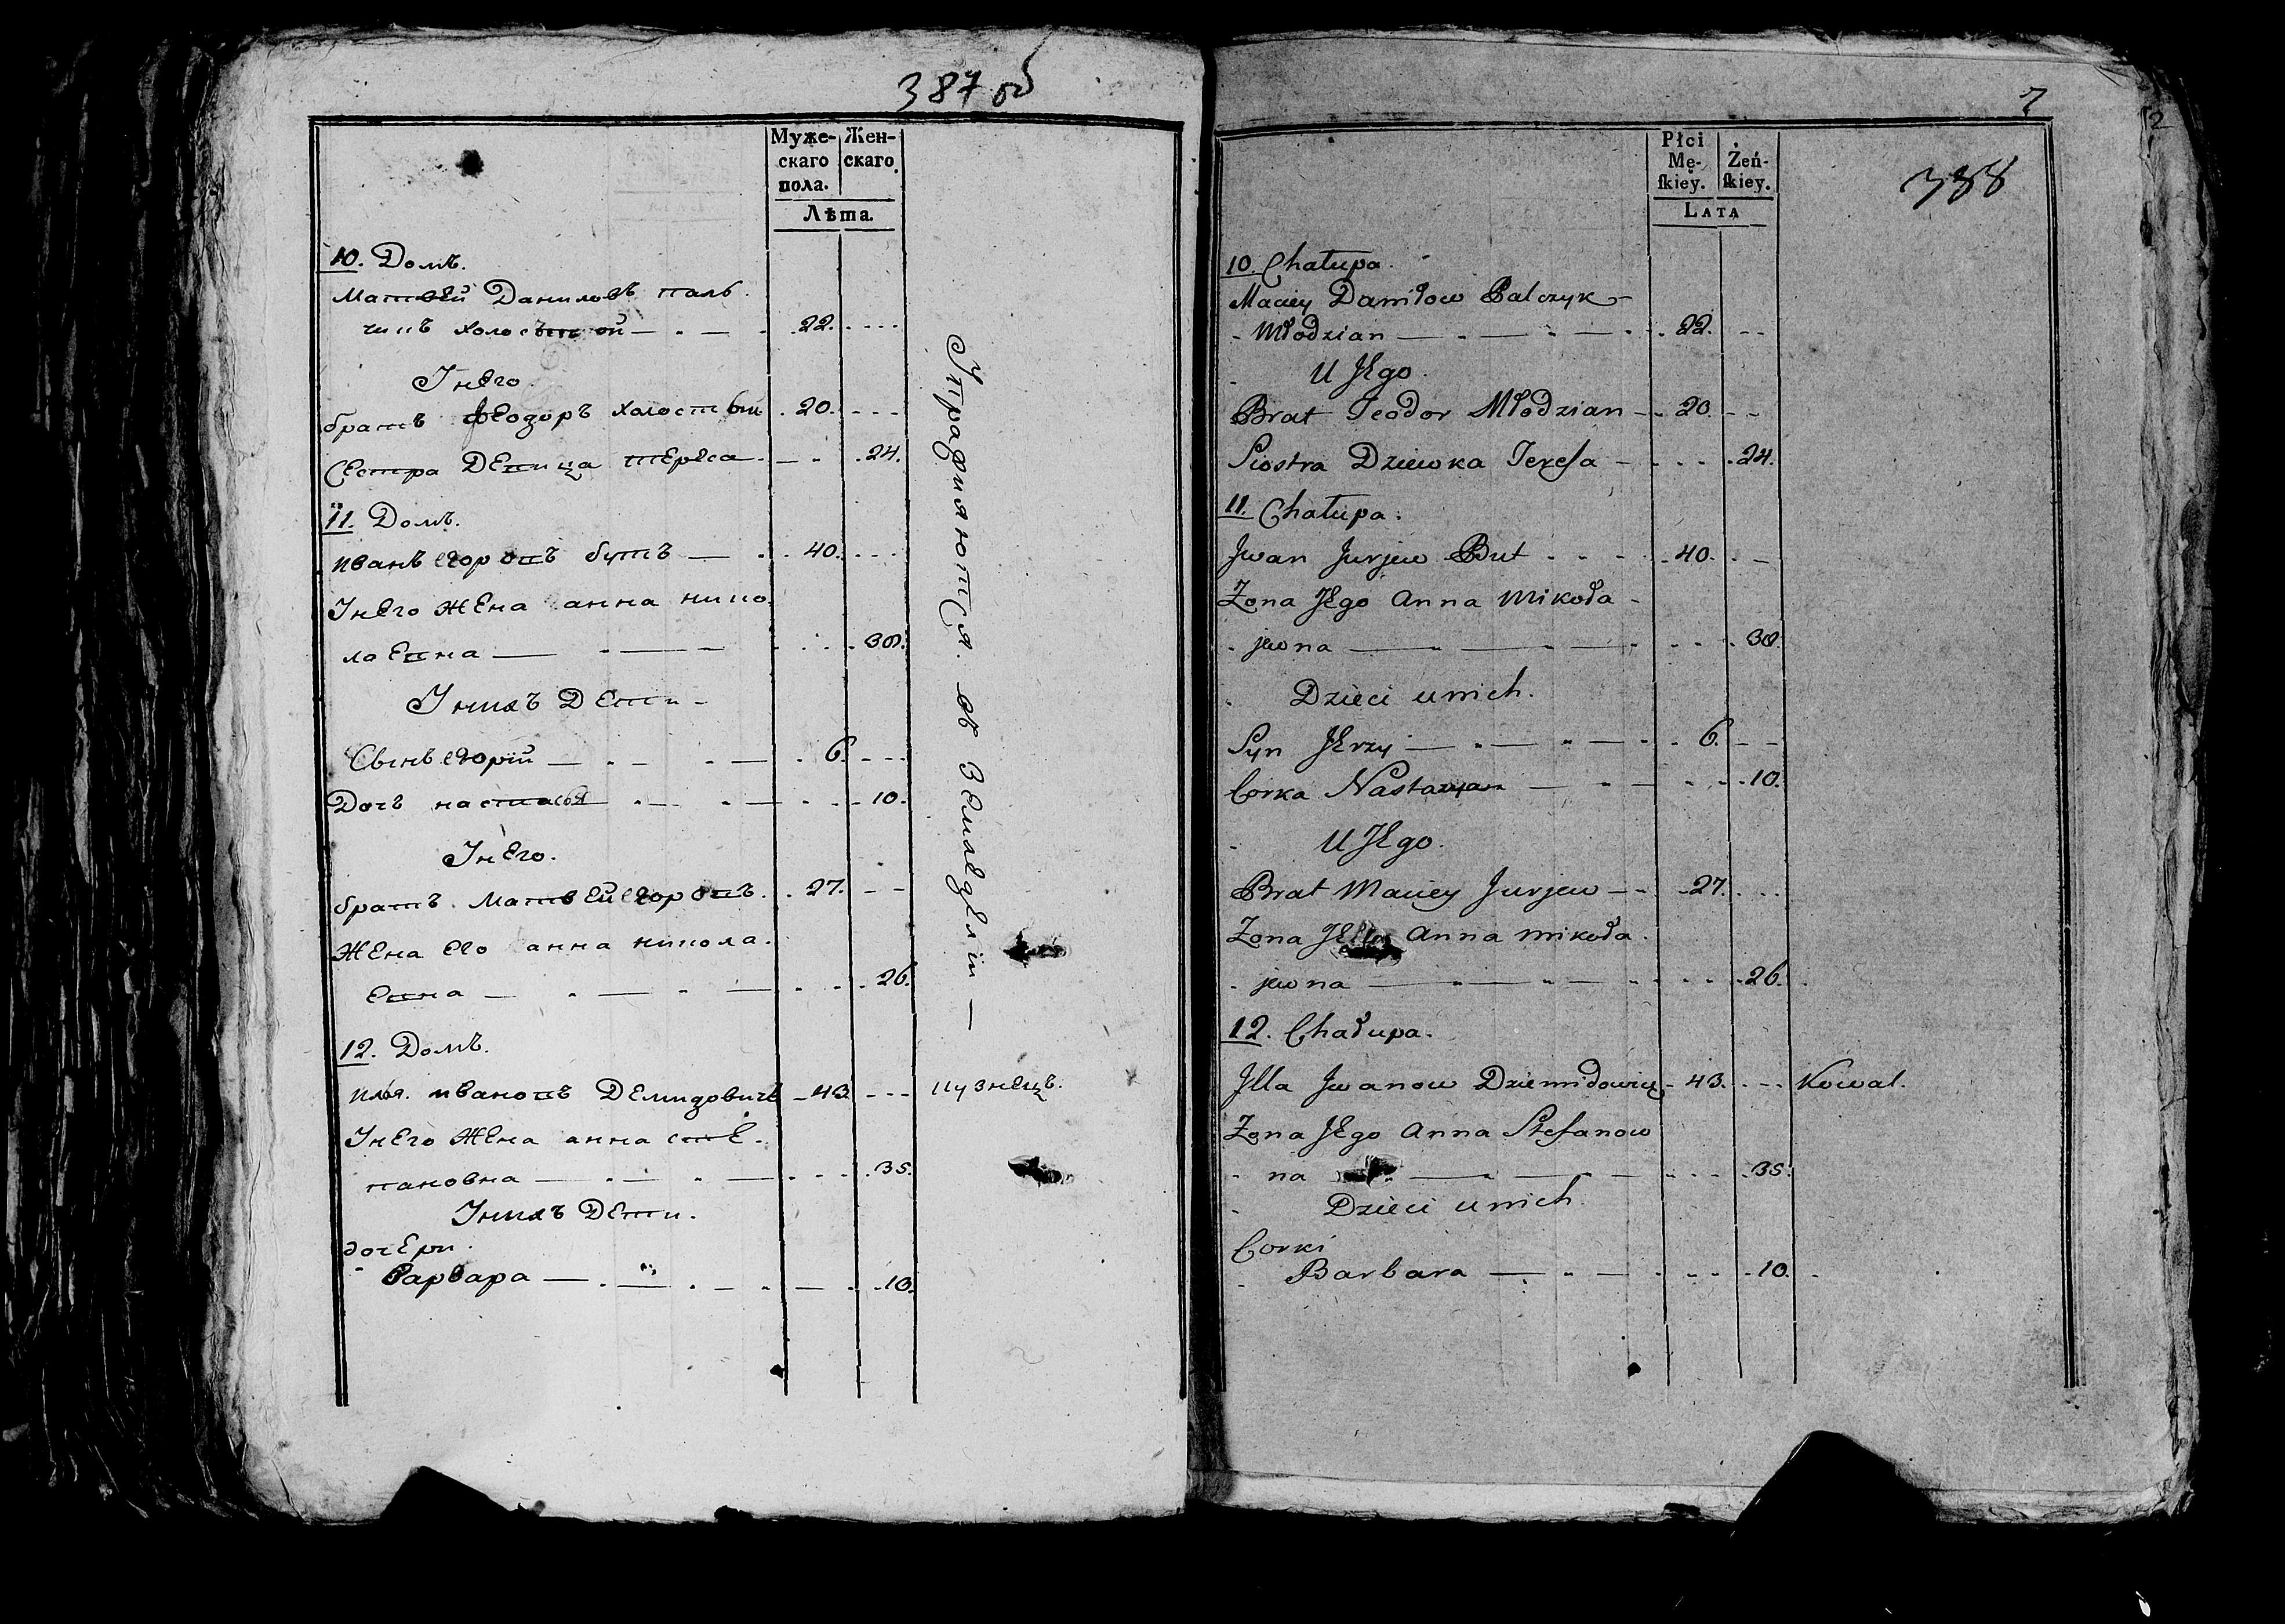 387 об
Муже- Жен-
скаго скаго.
пола.
Лѣта.
10. Домъ.
Матвей Даниловъ паль
чикъ холостой — 22.
Унего
братъ Феодоръ холостый 20.
Сестра Девица тереса 24.
11. Домъ.
иванъ егоровъ бутъ — 40.
Унего жена анна нико
лаевна — 38.
Унихъ Дети
Сынъ егорій — 6.
Дочъ настасья 10.
Унего.
братъ Матвей егоровъ. 27.
жена его анна никола
евна — 26.
12. Домъ.
илья ивановъ Демидовичъ 43. кузнецъ.
Унего жена анна сте
пановна — 35.
Унихъ Дети.
дочери.
Варвара — 10.
Упражняются въ Земледеліи —
7
2
388
Płci
Mę- Żeń-
ſkiey. ſkiey.
LATA
10. Chałupa.
Maciey Daniłow Palczyk
Młodzian — 22.
U Jego.
Brat Teodor Młodzian 20.
Siostra Dziewka Teresa 24.
11. Chałupa.
Jwan Jurjew But 40.
Zona Jego Anna Mikoła
jewna — 38.
Dzieci unich.
Syn Jerzy — 6.
Corka Nastazya 10.
U Jego.
Brat Maciey Jurjew 27.
Zona Anna Mikoła
jewna — 26.
12. Chałupa.
Jlla Jwanow Dziemidowicz 43. Kowal.
Zona Jego Anna Stefanow
na — 35.
Dzieci unich.
Corki
Barbara — 10.